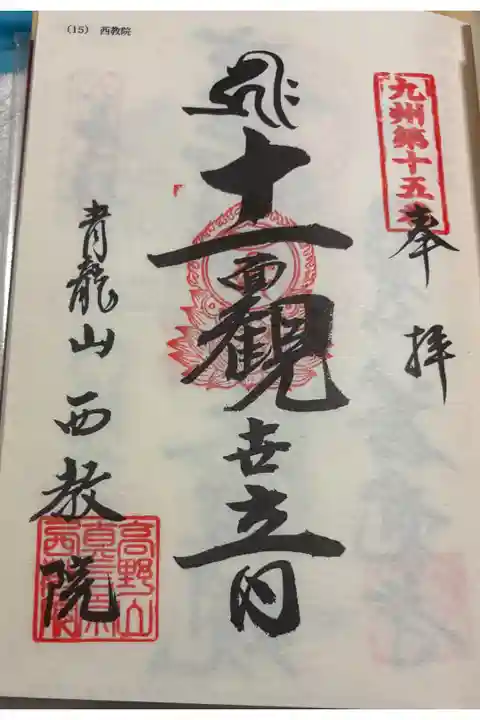 (15) 西教院
九州第十五番
奉拝
十一面観世音
青龍山 西教院
高野山
真言宗
西教院